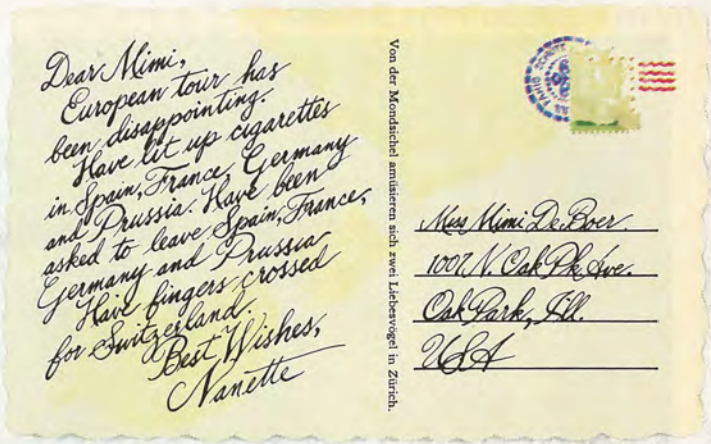 Dear Mimi,
European tour has
been disappointing.
Have lit up cigarettes
in Spain, France, Germany
and Prussia. Have been
asked to leave Spain, France,
Germany and Prussia
Have fingers crossed
for Switzerland.
Best Wishes,
Nanette
Von der Mondsichel amüsieren sich zwei Liebesvögel in Zürich.
Miss Mimi De Boer.
1007. N. Oak Pk Ave.
Oak Park, Ill.
USA